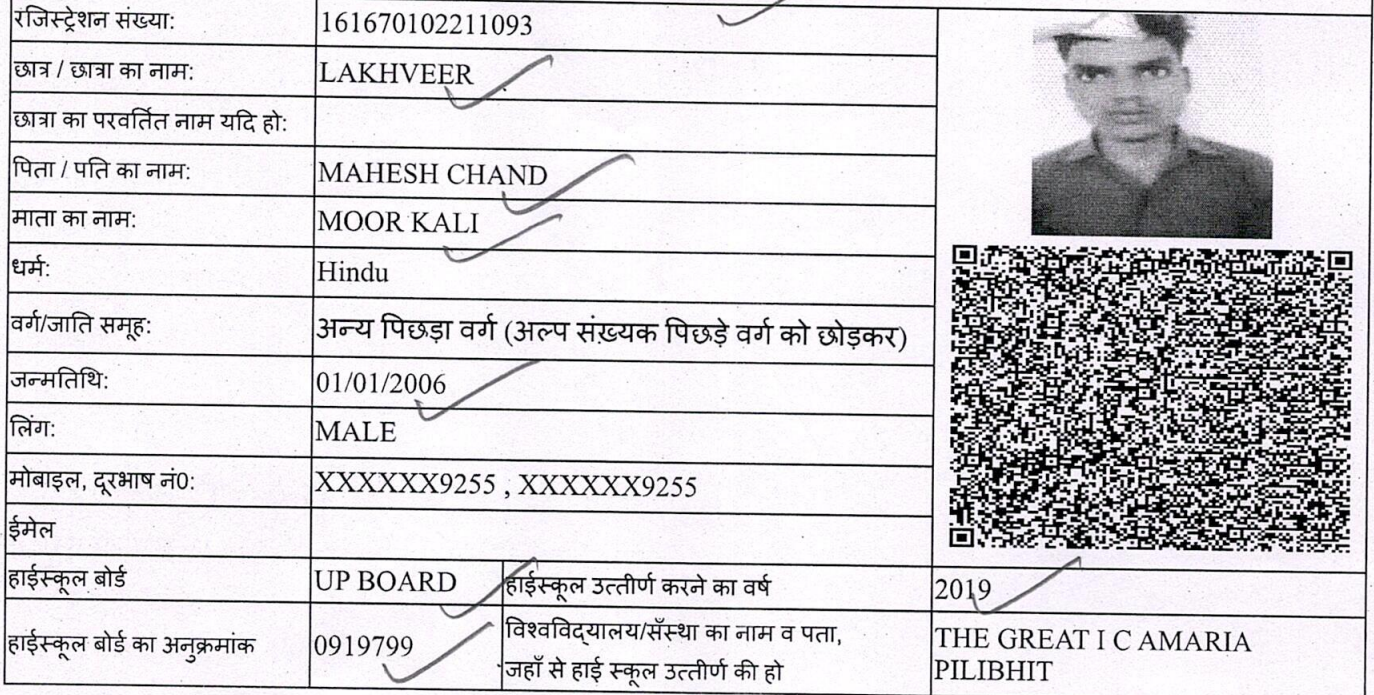 रजिस्ट्रेशन संख्या: 161670102211093
छात्र / छात्रा का नाम: LAKHVEER
छात्रा का परवर्तित नाम यदि हो:
पिता / पति का नाम: MAHESH CHAND
माता का नाम: MOOR KALI
धर्म: Hindu
वर्ग/जाति समूह: अन्य पिछड़ा वर्ग (अल्प संख़्यक पिछड़े वर्ग को छोड़कर)
जन्मतिथि: 01/01/2006
लिंग: MALE
मोबाइल, दूरभाष नं0: XXXXXX9255 , XXXXXX9255
ईमेल
हाईस्कूल बोर्ड UP BOARD हाईस्कूल उत्तीर्ण करने का वर्ष 2019
हाईस्कूल बोर्ड का अनुक्रमांक 0919799 विश्वविद्यालय/सँस्था का नाम व पता,
जहाँ से हाई स्कूल उत्तीर्ण की हो
THE GREAT I C AMARIA
PILIBHIT